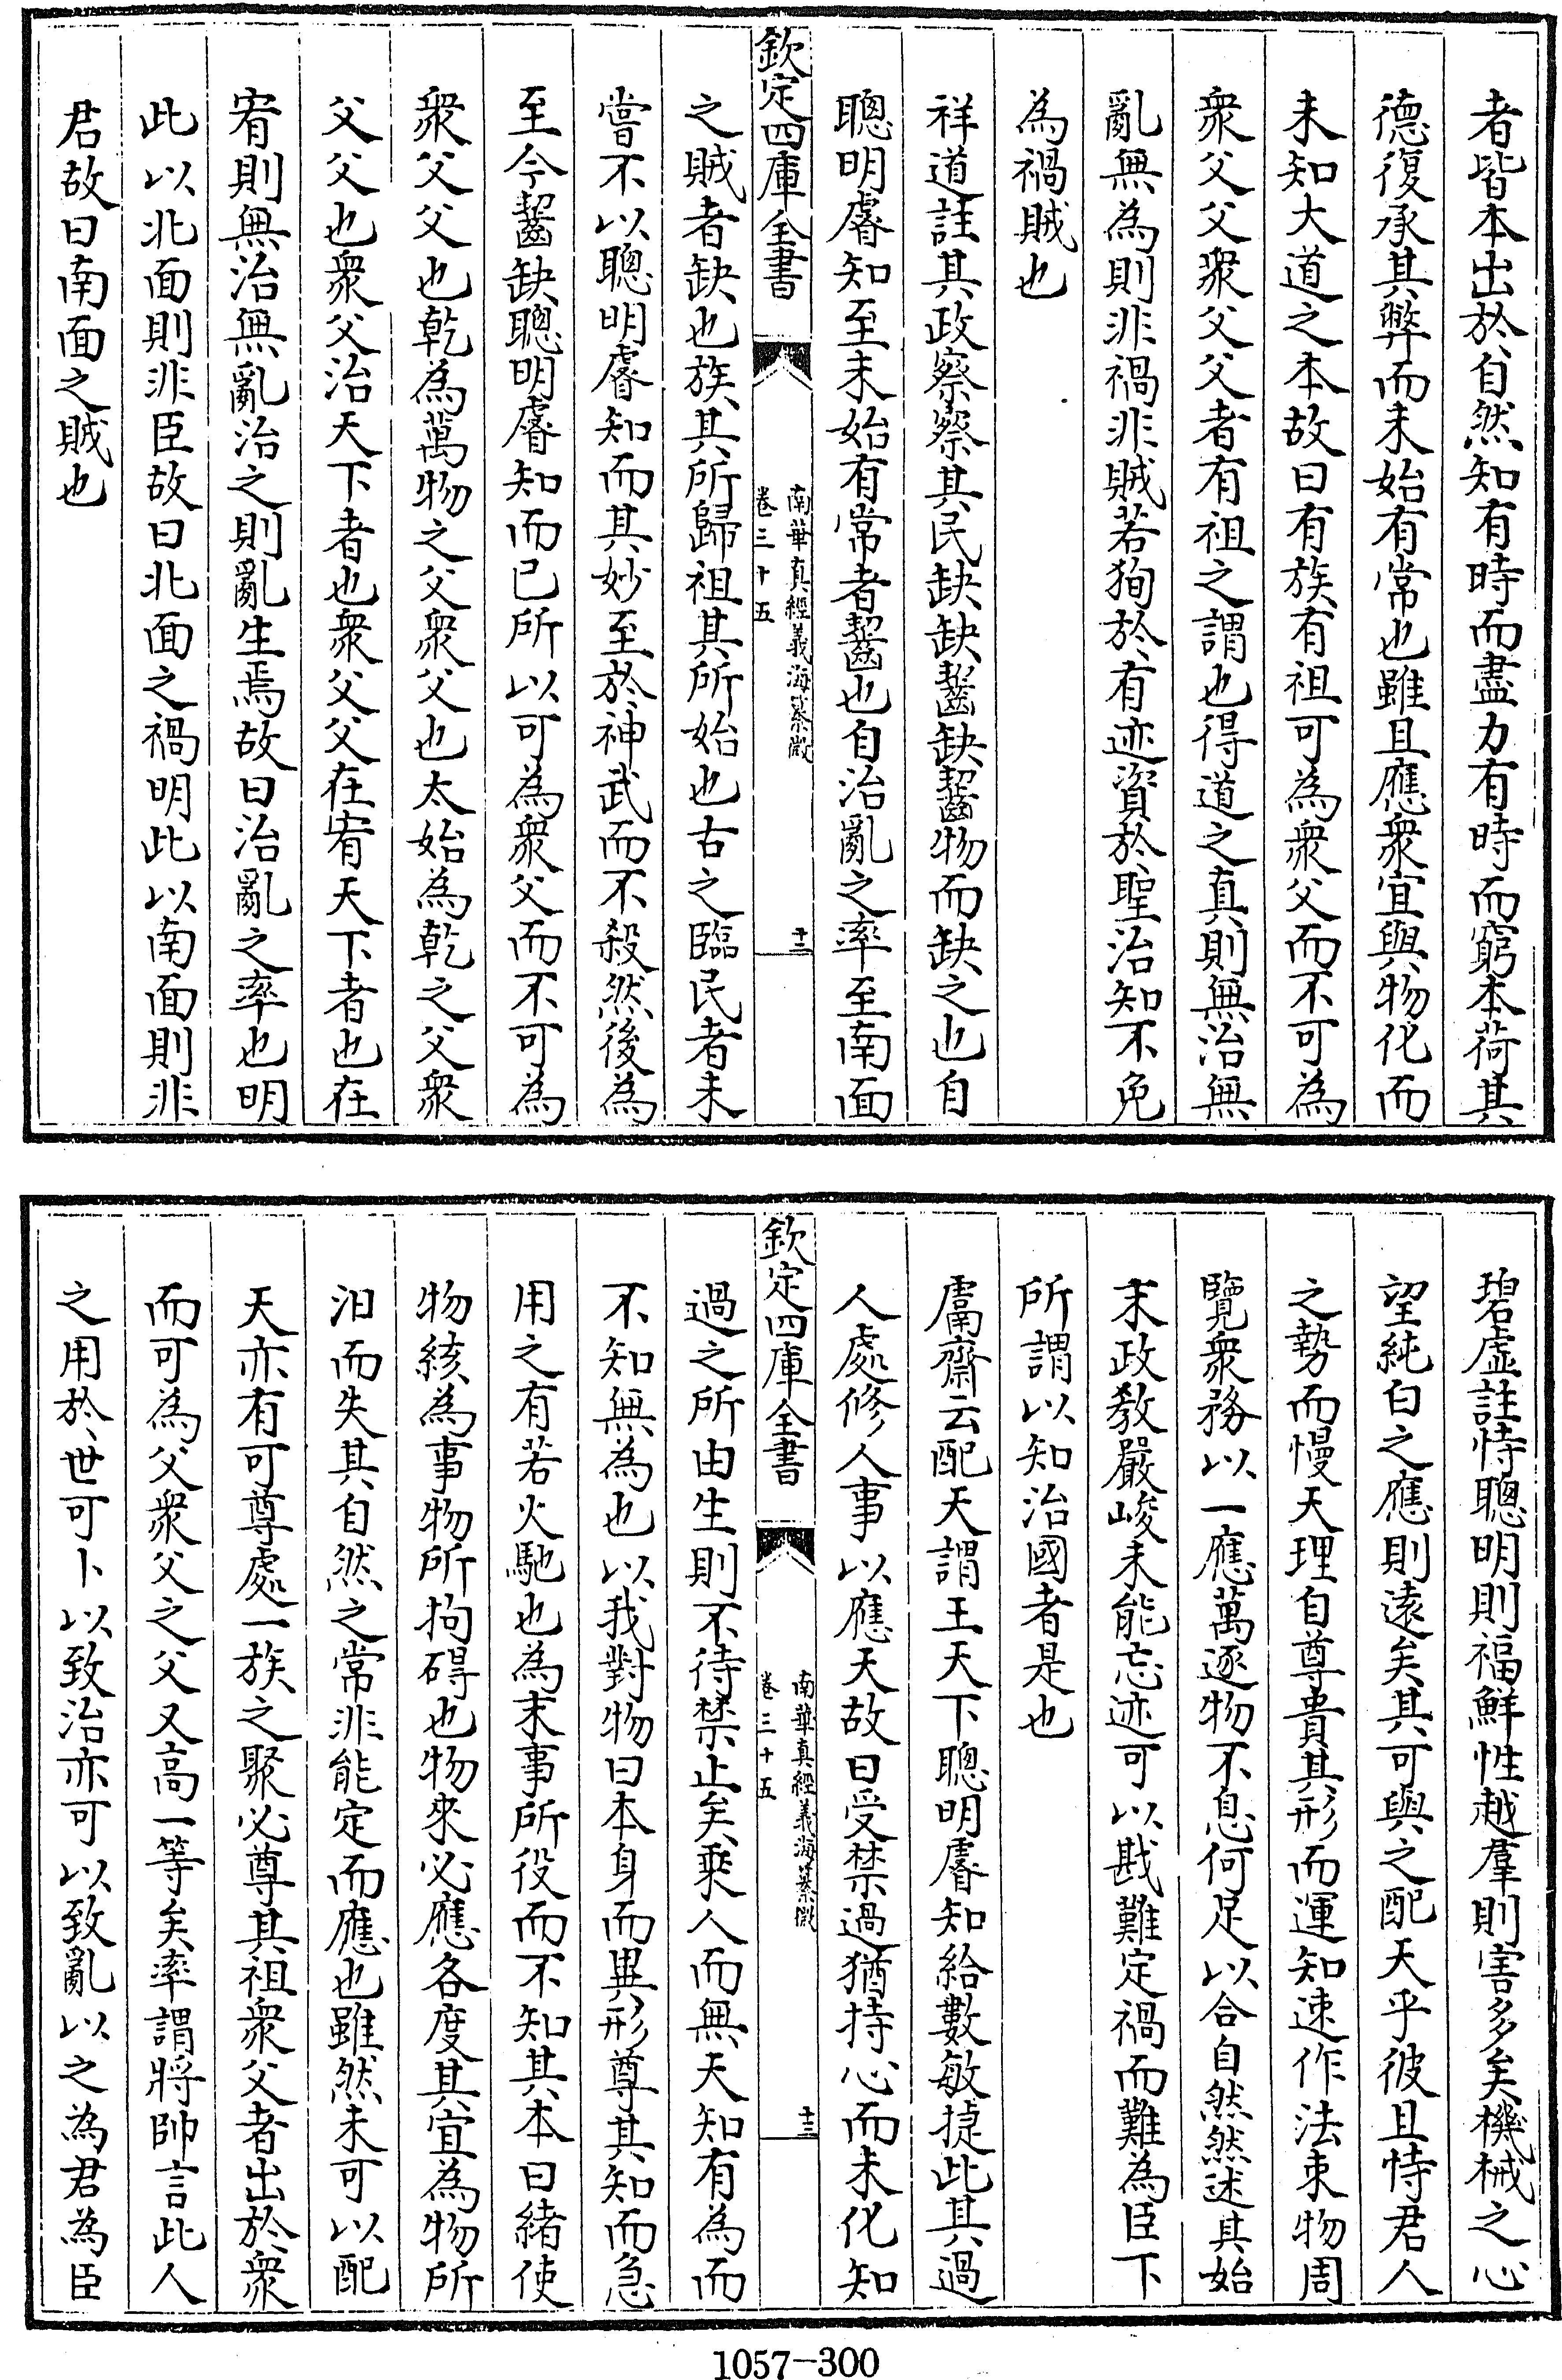 者皆本出於自然知有時而盡力有時而窮本荷其
德復承其弊而未始有常也雖且應衆宜與物化而
未知大道之本故曰有族有祖可為衆父而不可為
衆父父衆父父者有祖之謂也得道之真則無治無
亂無為則非禍非賊若狥於有迹資於聖治知不免
為禍賊也
祥道註其政察察其民缺缺齧缺齧物而缺之也自
聰明睿知至未始有常者齧也自治亂之率至南面
欽定四庫全書
南華真經義海纂微
卷三十五
十二
之賊者缺也族其所歸祖其所始也古之臨民者未
嘗不以聰明睿知而其妙至於神武而不殺然後為
至今齧缺聰明睿知而已所以可為衆父而不可為
衆父父也乾為萬物之父衆父也太始為乾之父衆
父父也衆父治天下者也衆父父在宥天下者也在
宥則無治無亂治之則亂生焉故曰治亂之率也明
此以北面則非臣故曰北面之禍明此以南面則非
君故曰南面之賊也
碧虛註恃聰明則福鮮性越羣則害多矣機械之心
望純白之應則遠矣其可與之配天乎彼且恃君人
之勢而慢天理自尊貴其形而運知速作法束物周
覽衆務以一應萬逐物不息何足以合自然然述其始
末政教嚴峻未能忘迹可以戡難定禍而難為臣下
所謂以知治國者是也
鬳齋云配天謂王天下聰明睿知給數敏捷此其過
人處修人事以應天故曰受禁過猶持心而未化知
欽定四庫全書
南華真經義海纂微
卷三十五
十三
過之所由生則不待禁止矣乘人而無天知有為而
不知無為也以我對物曰本身而異形尊其知而急
用之有若火馳也為末事所役而不知其本曰緒使
物絯為事物所拘碍也物來必應各度其宜為物所
汨而失其自然之常非能定而應也雖然未可以配
天亦有可尊處一族之聚必尊其祖衆父者出於衆
而可為父衆父之父又高一等矣率謂將帥言此人
之用於世可卜以致治亦可以致亂以之為君為臣
1057-300